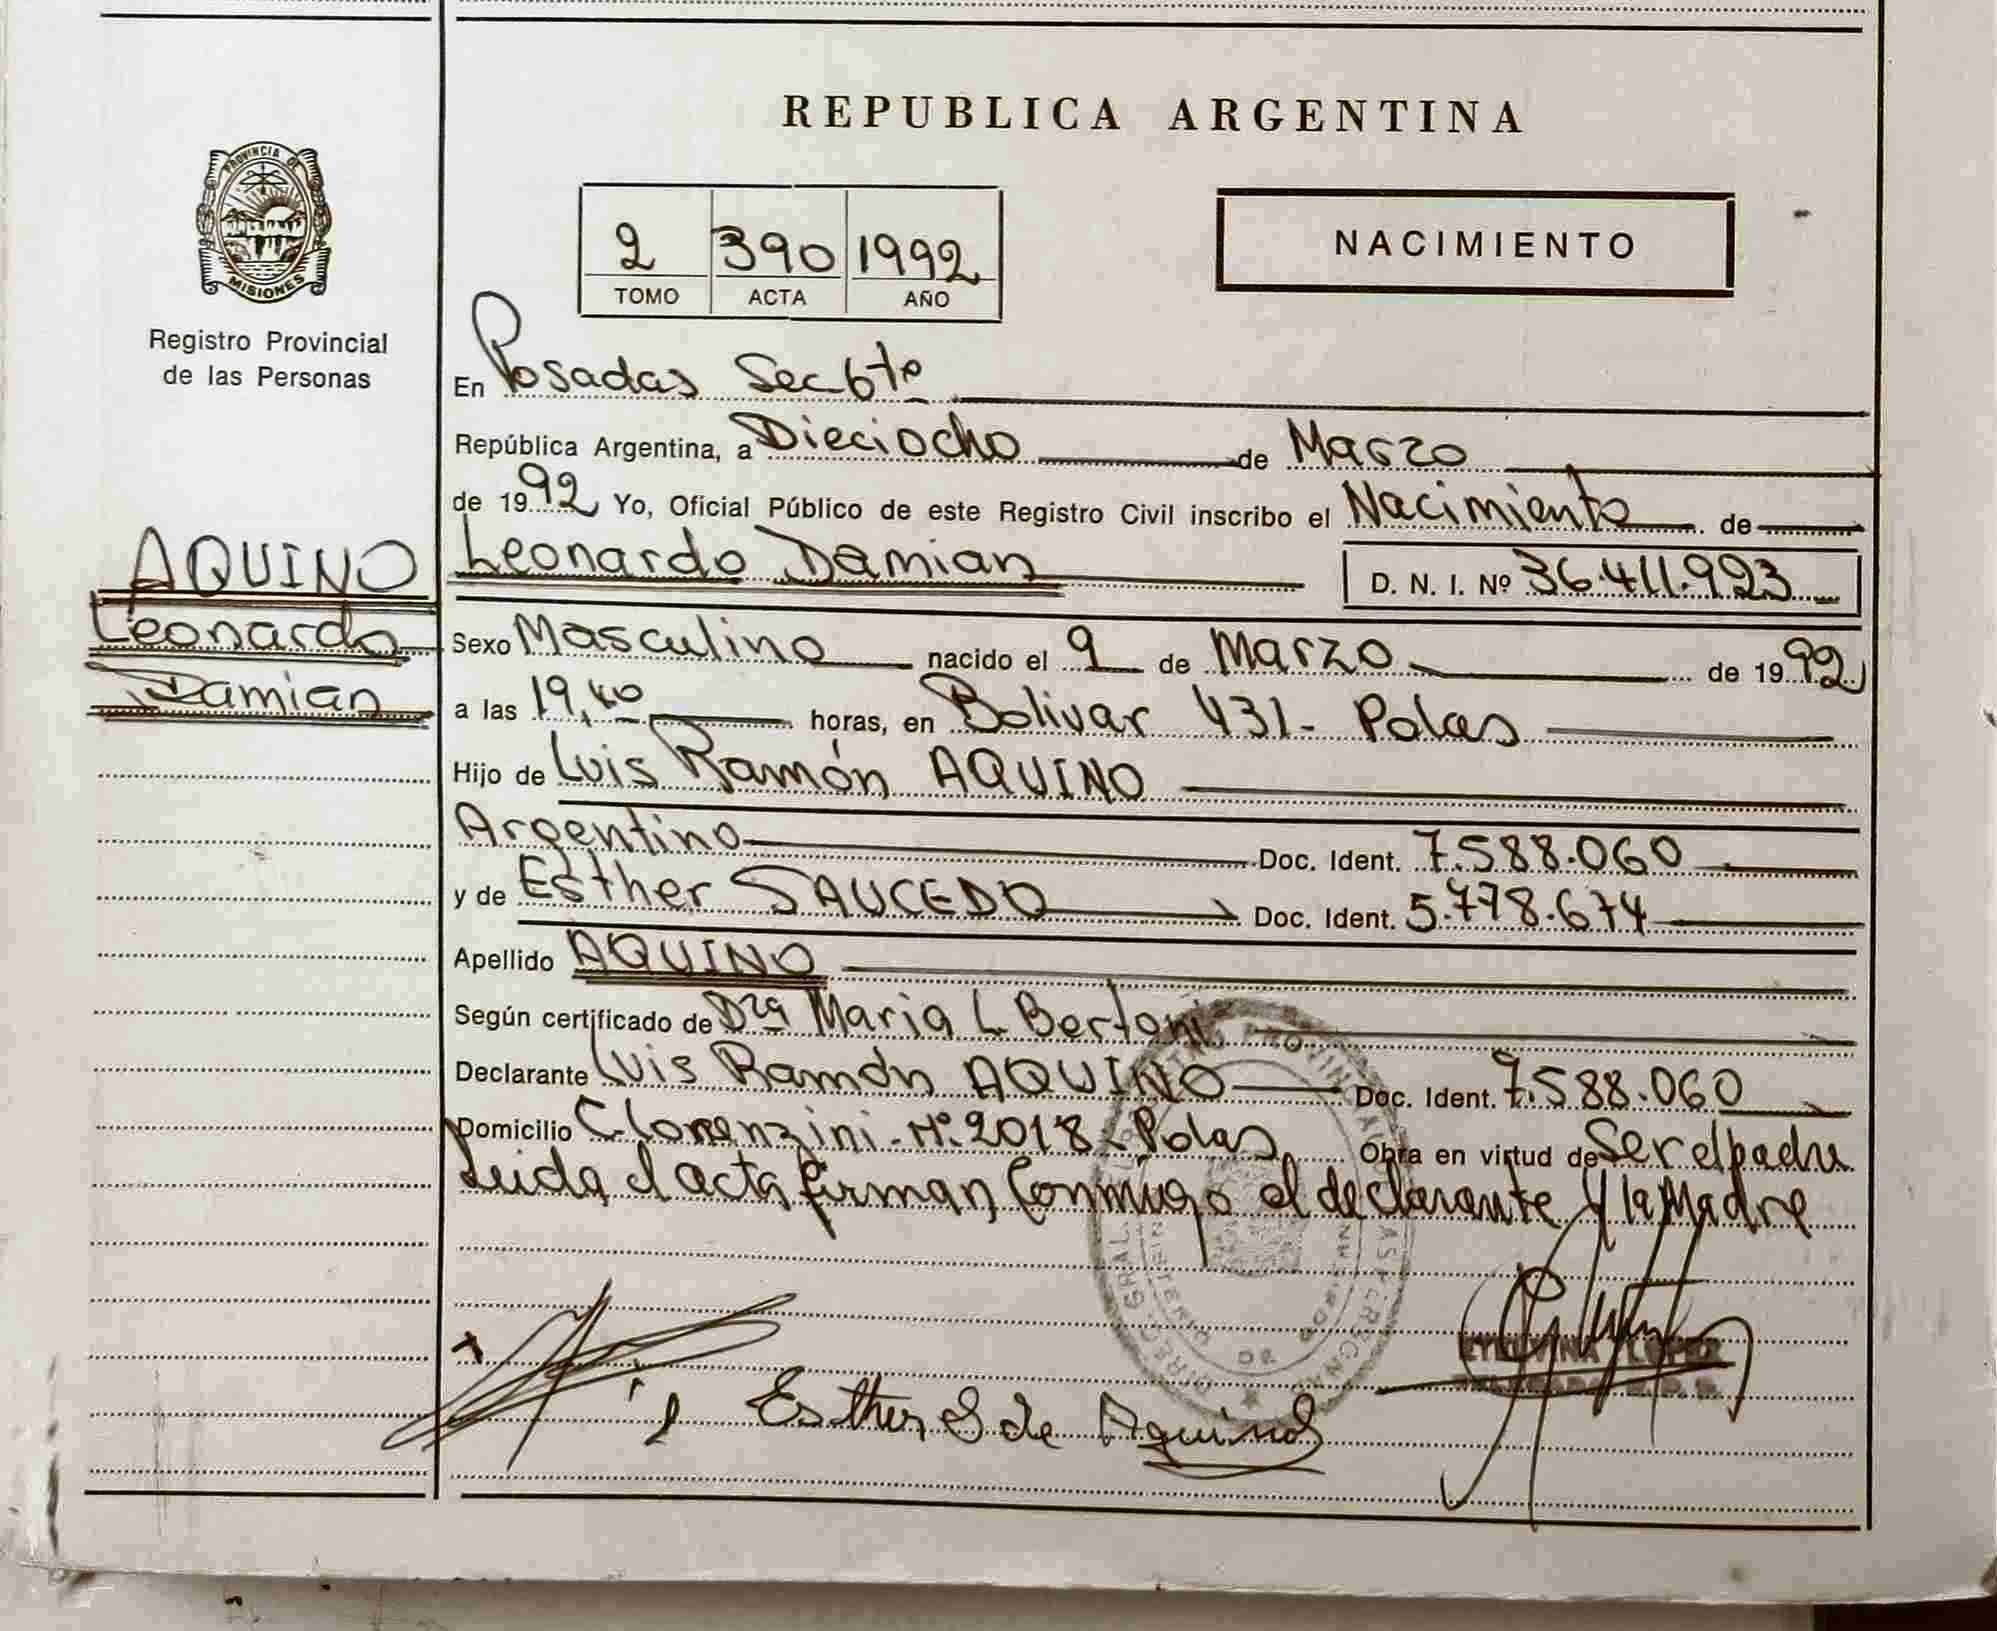 REPUBLICA ARGENTINA
PROVINCIA DE
MISIONES
Registro Provincial
de las Personas
2 390 1992
TOMO ACTA AÑO
NACIMIENTO
En Posadas Sec 6ta
República Argentina, a Dieciocho de Marzo
de 1992 Yo, Oficial Público de este Registro Civil inscribo el Nacimiento de
AQUINO
Leonardo
Damian
Leonardo Damian D. N. I. Nº 36.411.923
Sexo Masculino nacido el 9 de Marzo de 1992
a las 19,40 horas, en Bolivar 431- Pdas
Hijo de Luis Ramón AQUINO
Argentino Doc. Ident. 7.588.060
y de Esther SAUCEDO Doc. Ident. 5.778.674
Apellido AQUINO
Según certificado de Dra Maria L. Bertoni
Declarante Luis Ramón AQUINO Doc. Ident. 7.588.060
Domicilio C. Lorenzini - Nº 2018 - Pdas Obra en virtud de Ser el padre
Leida el acta firman Conmigo el declarante y la Madre
Esther S de Aquino
LOPEZ